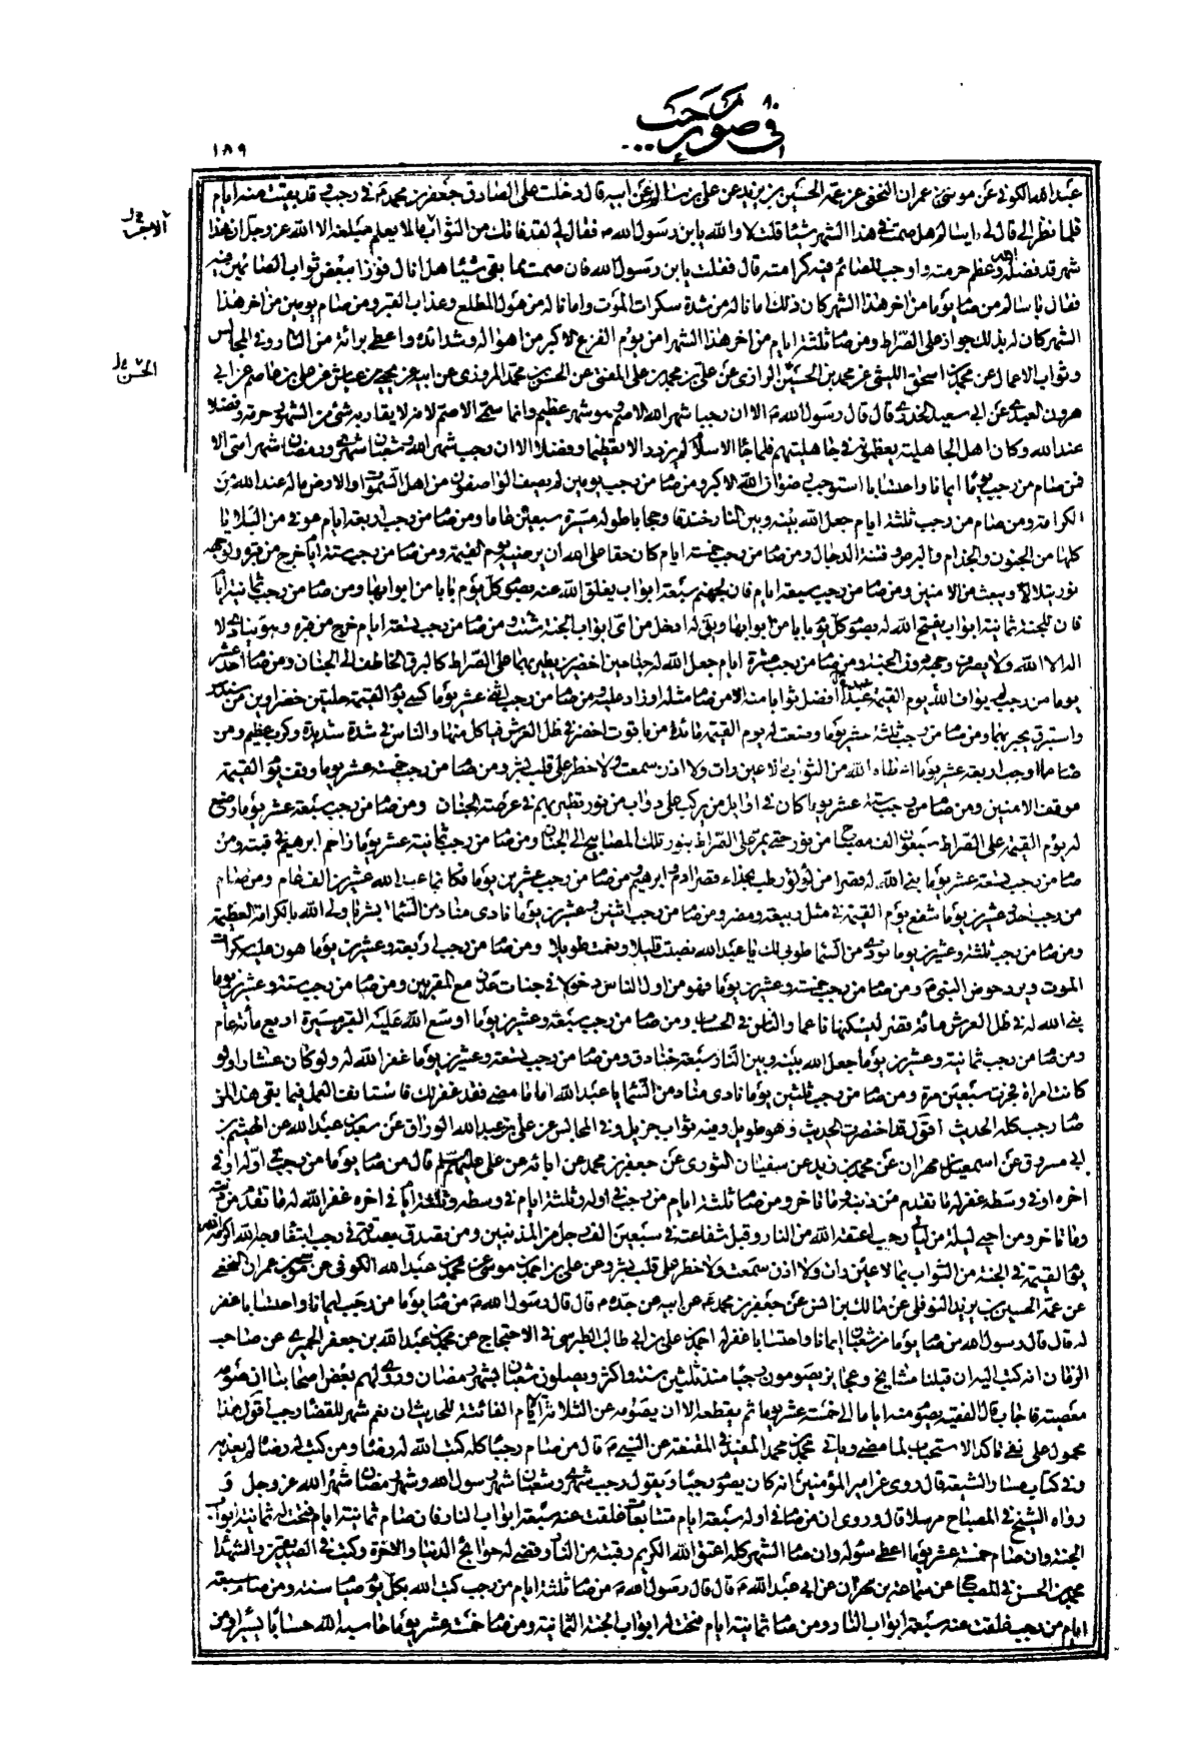 في صوم رجب
١٨٩
عبد الله الكوفي عن موسى بن عمران النخعي عن عمه الحسين بن يزيد عن علي بن سالم عن ابيه قال دخلت على الصادق جعفر بن محمد ع في رجب وقد بقيت منه ايام
فلما نظر الي قال لي يا سالم هل صمت في هذا الشهر شيئا قلت لا والله يا بن رسول الله ص فقال لي لقد فاتك من الثواب ما لا يعلم مبلغه الا الله عز وجل ان هذا
شهر قد فضله الله وعظم حرمته واوجب للصائم فيه كرامته قال فقلت يا بن رسول الله فان صمت مما بقي شيئا هل انال فوزا ببعض ثواب الصائمين فيه
فقال يا سالم من صام يوما من اخر هذا الشهر كان ذلك امانا له من شدة سكرات الموت وامانا له من هول المطلع وعذاب القبر ومن صام يومين من اخر هذا
الشهر كان له بذلك جواز على الصراط ومن صام ثلثة ايام من اخر هذا الشهر امن يوم الفزع الاكبر من اهواله وشدائده واعطي برائة من النار وفي المجالس
وثواب الاعمال عن محمد بن اسحق الليثي عن محمد بن الحسين الرازي عن علي بن محمد بن علي المفتي عن الحسن بن محمد المروزي عن ابيه عن يحيى بن عياش عن علي بن عاصم عن ابي
هرون العبدي عن ابي سعيد الخدري قال قال رسول الله ص الا ان رجبا شهر الله الاصم وهو شهر عظيم وانما سمي الاصم لانه لا يقاربه شئ من الشهور حرمة وفضلا
عند الله وكان اهل الجاهلية يعظمونه في جاهليتهم فلما جاء الاسلام لم يزدد الا تعظيما وفضلا الا ان رجب شهر الله وشعبان شهري ورمضان شهر امتي الا
فمن صام من رجب يوما ايمانا واحتسابا استوجب رضوان الله الاكبر ومن صام من رجب يومين لم يصف الواصفون من اهل السموات والارض ماله عند الله من
الكرامة ومن صام من رجب ثلثة ايام جعل الله بينه وبين النار خندقا وحجابا طوله مسيرة سبعين عاما ومن صام من رجب اربعة ايام عوفي من البلايا
كلها من الجنون والجذام والبرص وفتنة الدجال ومن صام من رجب خمسة ايام كان حقا على الله ان يرضيه يوم القيمة ومن صام من رجب ستة ايام خرج من قبره ولوجهه
نور يتلالأ ويبعث من الامنين ومن صام من رجب سبعة ايام فان لجهنم سبعة ابواب يغلق الله عنه بصوم كل يوم بابا من ابوابها ومن صام من رجب ثمانية ايام
فان للجنة ثمانية ابواب يفتح الله له بصوم كل يوم بابا من ابوابها ويق له ادخل من اي ابواب الجنة شئت ومن صام من رجب تسعة ايام خرج من قبره وهو ينادي لا
اله الا الله ولا يصرف وجهه دون الجنة ومن صام من رجب عشرة ايام جعل الله له جناحين اخضرين يطير بهما على الصراط كالبرق الخاطف الى الجنان ومن صام احد عشر
يوما من رجب لم يواف الله يوم القيمة عبد افضل ثوابا منه الا من صام مثله او زاد عليه ومن صام من رجب اثني عشر يوما كسي يوم القيمة حلتين خضراوين من سندس
واستبرق يحبر بهما ومن صام من رجب ثلثة عشر يوما وضعت له يوم القيمة مائدة من ياقوت اخضر في ظل العرش فياكل منها والناس في شدة شديدة وكرب عظيم ومن
صام من رجب اربعة عشر يوما اعطاه الله من الثواب ما لا عين رات ولا اذن سمعت ولا خطر على قلب بشر ومن صام من رجب خمسة عشر يوما وقف يوم القيمة
موقف الامنين ومن صام من رجب ستة عشر يوما كان في اوايل من يركب على دواب من نور تطير بهم في عرصة الجنان ومن صام من رجب سبعة عشر يوما وضع
له يوم القيمة على الصراط سبعون الف مصباح من نور حتى يمر على الصراط بنور تلك المصابيح الى الجنان ومن صام من رجب ثمانية عشر يوما زاحم ابرهيم في قبته ومن
صام من رجب تسعة عشر يوما بنى الله له قصرا من لؤلؤ رطب بحذاء قصر ادم وابرهيم ومن صام من رجب عشرين يوما فكانما عبد الله عشرين الف عام ومن صام
من رجب احد وعشرين يوما شفع يوم القيمة في مثل ربيعة ومضر ومن صام من رجب اثنين وعشرين يوما نادى مناد من السماء ابشر يا ولي الله بالكرامة العظيمة
ومن صام من رجب ثلثة وعشرين يوما نودي من السماء طوبى لك يا عبد الله نصبت قليلا ونعمت طويلا ومن صام من رجب اربعة وعشرين يوما هون عليه سكرات
الموت ويرد حوض النبي ص ومن صام من رجب خمسة وعشرين يوما فهو من اول الناس دخولا في جنات عدن مع المقربين ومن صام من رجب ستة وعشرين يوما
بنى الله له في ظل العرش مائة قصر ليسكنها ناعما والناس في الحساب ومن صام من رجب سبعة وعشرين يوما اوسع الله عليه القبر مسيرة اربع مائة عام
ومن صام من رجب ثمانية وعشرين يوما جعل الله بينه وبين النار سبعة خنادق ومن صام من رجب تسعة وعشرين يوما غفر الله له ولو كان عشارا ولو
كانت امراة فجرت سبعين مرة ومن صام من رجب ثلثين يوما نادى مناد من السماء يا عبد الله اما ما مضى فقد غفر لك فاستانف العمل فيما بقي هذا لمن
صام رجب كله الحديث اقول هذا اختصرت الحديث وهو طويل وفيه ثواب جزيل وفي المجالس عن علي بن عبد الله الوراق عن سعد بن عبد الله عن الهيثم بن
ابي مسروق عن اسمعيل بن مهران عن محمد بن يزيد عن سفيان الثوري عن جعفر بن محمد عن ابائه عن علي عليهم السلام قال من صام يوما من رجب في اوله او في
اخره او في وسطه غفر له ما تقدم من ذنبه وما تاخر ومن صام ثلثة ايام من رجب في اوله وثلثة ايام في وسطه وثلثة ايام في اخره غفر الله له ما تقدم من ذنبه
وما تاخر ومن احيى ليلة من ليالي رجب اعتقه الله من النار وقبل شفاعته في سبعين الف رجل من المذنبين ومن تصدق بصدقة في رجب ابتغاء وجه الله اكرمه الله
يوم القيمة في الجنة من الثواب بما لا عين رات ولا اذن سمعت ولا خطر على قلب بشر وعن علي بن احمد بن موسى عن محمد بن عبد الله الكوفي عن موسى بن عمران النخعي
عن عمه الحسين بن يزيد النوفلي عن مالك بن انس عن جعفر بن محمد ع عن ابيه عن جده ع قال قال رسول الله ص من صام يوما من رجب ايمانا واحتسابا غفر
له قال قال رسول الله من صام يوما من شعبان ايمانا واحتسابا غفر له احمد بن علي بن ابي طالب الطبرسي في الاحتجاج عن محمد بن عبد الله بن جعفر الحميري عن صاحب
الزمان انه كتب اليه ان قبلنا مشايخ وعجايز يصومون رجبا منذ ثلثين سنة واكثر ويصلون شعبان بشهر رمضان وروى لهم بعض اصحابنا ان صومه
معصية فاجاب قال الفقيه يصوم منه اياما الى خمسة عشر يوما ثم يقطعه الا ان يصومه عن الثلاثة الايام الفائتة للحديث ان نعم شهر للقضا رجب اقول هذا
محمول على نفي تاكد الاستحباب لما مضى وياتي محمد بن محمد المفيد في المقنعة عن النبي ص قال من صام رجبا كله كتب الله له رضاه ومن كتب له رضاه لم يعذبه
وفي كتاب مسار الشيعة قال روي عن امير المؤمنين انه كان يصوم رجبا ويقول رجب شهري وشعبان شهر رسول الله وشهر رمضان شهر الله عز وجل و
رواه الشيخ في المصباح مرسلا قال وروي ان من صام في اوله سبعة ايام متتابعات غلقت عنه سبعة ابواب النار فان صام ثمانية ايام فتحت له ثمانية ابواب
الجنة وان صام خمسة عشر يوما اعطي سؤله وان صام الشهر كله اعتق الله الكريم رقبته من النار وقضى له حوائج الدنيا والاخرة وكتبه في الصديقين والشهداء
محمد بن الحسن في المصباح عن سماعة بن مهران عن ابي عبد الله ع قال قال رسول الله ص من صام ثلثة ايام من رجب كتب الله بكل يوم صيام سنة ومن صام سبعة
ايام من رجب غلقت عنه سبعة ابواب النار ومن صام ثمانية ايام فتحت له ابواب الجنة الثمانية ومن صام خمسة عشر يوما حاسبه الله حسابا يسيرا ومن